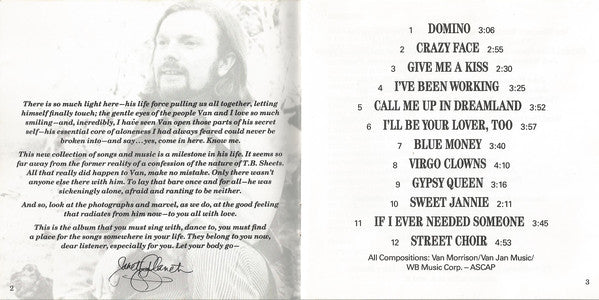 There is so much light here—his life force pulling us all together, letting
himself finally touch; the gentle eyes of the people Van and I love so much
smiling—and, incredibly, I have seen Van open those parts of his secret
self—his essential core of aloneness I had always feared could never be
broken into—and say...yes, come in here. Know me.
This new collection of songs and music is a milestone in his life. It seems so
far away from the former reality of a confession of the nature of T.B. Sheets.
All that really did happen to Van, make no mistake. Only there wasn't
anyone else there with him. To lay that bare once and for all—he was
sickeningly alone, afraid and ranting to be neither.
And so, look at the photographs and marvel, as we do, at the good feeling
that radiates from him now—to you all with love.
This is the album that you must sing with, dance to, you must find
a place for the songs somewhere in your life. They belong to you now,
dear listener, especially for you. Let your body go—
Janet Planet
2
1 DOMINO 3:06
2 CRAZY FACE 2:55
3 GIVE ME A KISS 2:30
4 I'VE BEEN WORKING 3:25
5 CALL ME UP IN DREAMLAND 3:52
6 I'LL BE YOUR LOVER, TOO 3:57
7 BLUE MONEY 3:40
8 VIRGO CLOWNS 4:10
9 GYPSY QUEEN 3:16
10 SWEET JANNIE 2:10
11 IF I EVER NEEDED SOMEONE 3:45
12 STREET CHOIR 4:53
All Compositions: Van Morrison/Van Jan Music/
WB Music Corp. – ASCAP
3